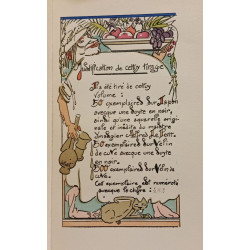 Justification de cettuy tirage
Il a été tiré de cettuy
volume :
50 exemplaires sur Japon
avecque une suyte en
noir, ainsi une aquarelle origi-
nale et inédite du maistre
ymaigier Alfred Le Petit.
50 exemplaires sur Vélin
de cuve avecque une suyte
en noir.
500 exemplaires sur Vélin de
cuve.
Cet exemplaire est numéroté
avecque le chiffre :